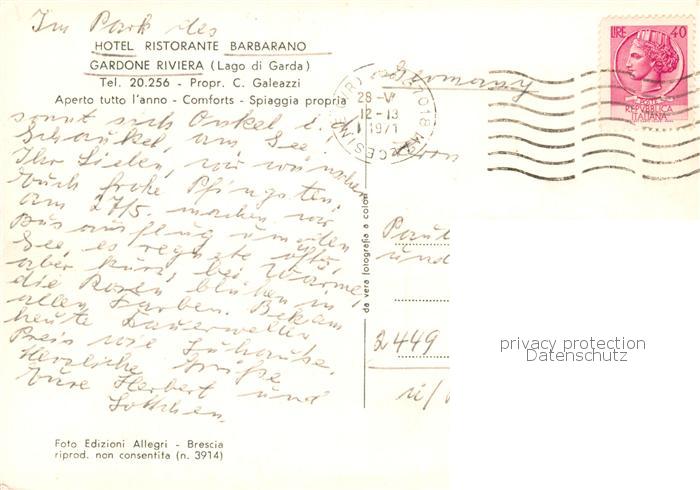 Im Park des
HOTEL RISTORANTE BARBARANO
GARDONE RIVIERA (Lago di Garda)
Tel. 20.256 - Propr. C. Galeazzi
Aperto tutto l'anno - Comforts - Spiaggia propria
sonnt sich Onkel i. d.
Schaukel, am See,
Ihr Lieben, wir wünschen
Euch frohe Pfingsten,
am 27/5. machen wir
Busausflug um den
See, es regnete öfts,
aber kurz, bei Wärme,
die Rosen blühen in
allen Farben. Bekam
heute Dauerwellen
Preis wie Zuhause.
Herzliche Grüße
Eure Herbert und
Lottchen.
Foto Edizioni Allegri - Brescia
riprod. non consentita (n. 3914)
da vera fotografia a colori
Germany
28-V
12-13
1971
LIRE 40
POSTE
REPVBBLICA
ITALIANA
und
2449
privacy protection
Datenschutz